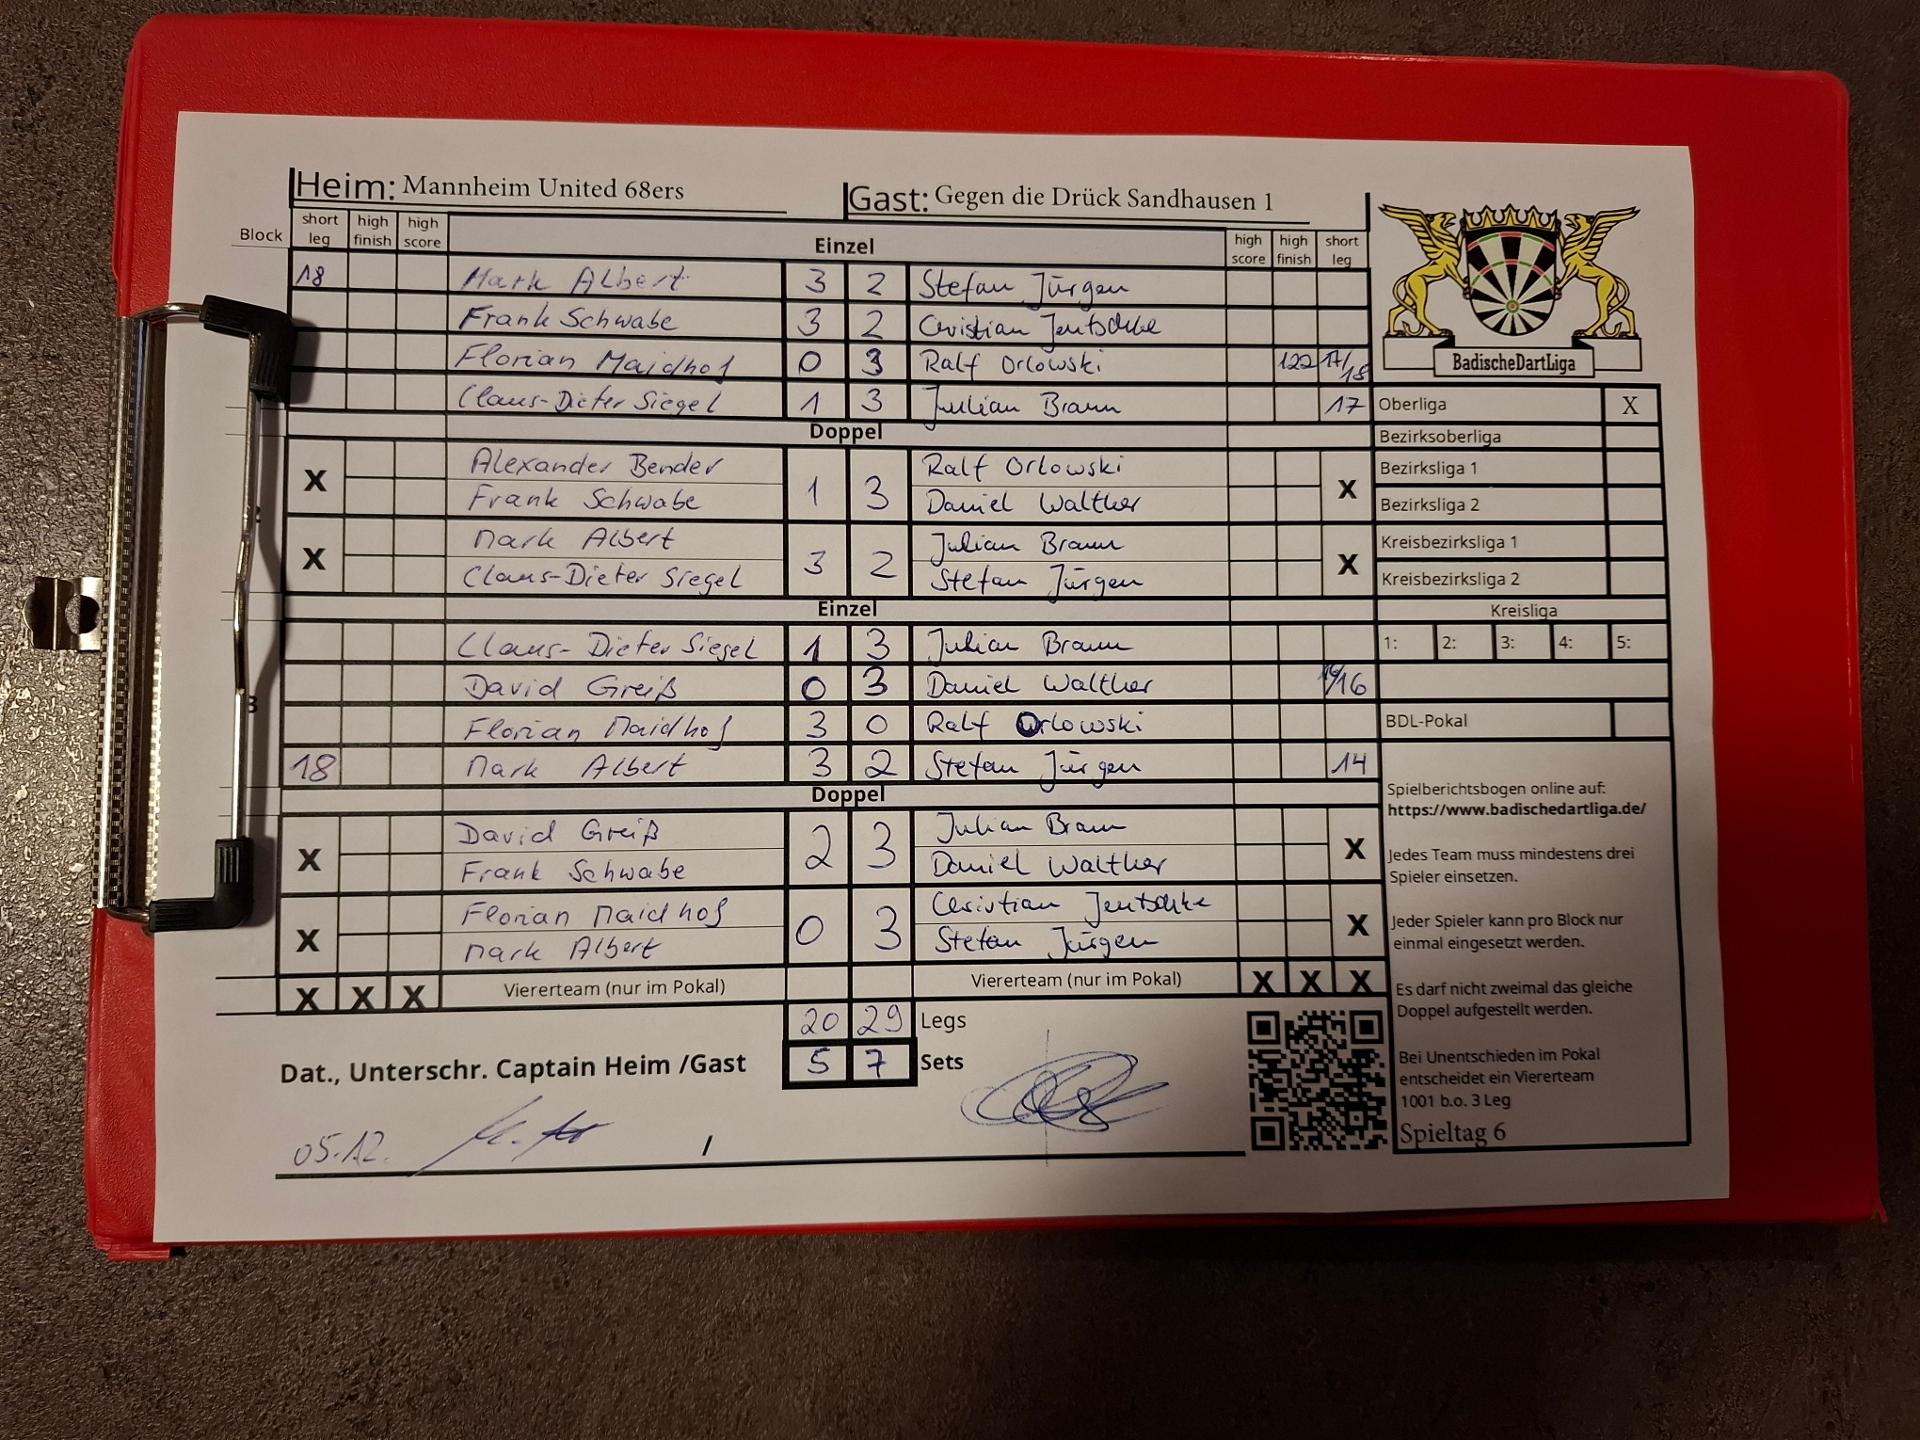 Heim: Mannheim United 68ers Gast: Gegen die Drück Sandhausen 1
Block short leg high finish high score Einzel high score high finish short leg
18 Mark Albert 3 2 Stefan Jürgen
Frank Schwabe 3 2 Christian Jentschke
Florian Maidhof 0 3 Ralf Orlowski 122 17/18
Claus-Dieter Siegel 1 3 Julian Braun 17
Doppel
X Alexander Bender 1 3 Ralf Orlowski X
Frank Schwabe Daniel Walther
X Mark Albert 3 2 Julian Braun X
Claus-Dieter Siegel Stefan Jürgen
Einzel
Claus-Dieter Siegel 1 3 Julian Braun
3 David Greiß 0 3 Daniel Walther /16
Florian Maidhof 3 0 Ralf Orlowski
18 Mark Albert 3 2 Stefan Jürgen 14
Doppel
X David Greiß 2 3 Julian Braun X
Frank Schwabe Daniel Walther
X Florian Maidhof 0 3 Christian Jentschke X
Mark Albert Stefan Jürgen
X X X Viererteam (nur im Pokal) Viererteam (nur im Pokal) X X X
20 29 Legs
Dat., Unterschr. Captain Heim /Gast 5 7 Sets
05.12. /
BadischeDartLiga
Oberliga X
Bezirksoberliga
Bezirksliga 1
Bezirksliga 2
Kreisbezirksliga 1
Kreisbezirksliga 2
Kreisliga
1: 2: 3: 4: 5:
BDL-Pokal
Spielberichtsbogen online auf:
https://www.badischedartliga.de/
Jedes Team muss mindestens drei
Spieler einsetzen.
Jeder Spieler kann pro Block nur
einmal eingesetzt werden.
Es darf nicht zweimal das gleiche
Doppel aufgestellt werden.
Bei Unentschieden im Pokal
entscheidet ein Viererteam
1001 b.o. 3 Leg
Spieltag 6